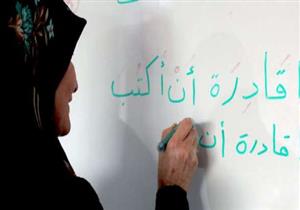 قَادِرَة أَنْ أَكتب
قادرة أن